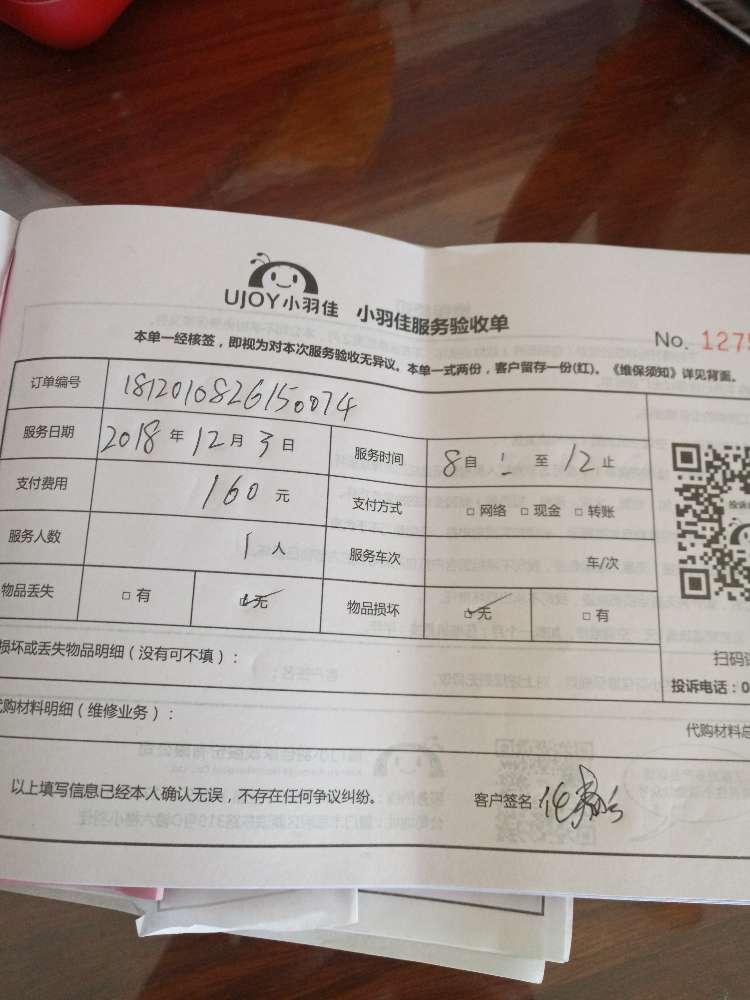 UJOY小羽佳 小羽佳服务验收单
No. 1275
本单一经核签，即视为对本次服务验收无异议。本单一式两份，客户留存一份(红)。《维保须知》详见背面。
订单编号 1812010826150074
服务日期 2018 年 12 月 3 日 服务时间 8 自 : 至 12 止
支付费用 160 元 支付方式 □ 网络 □ 现金 □ 转账
服务人数 1 人 服务车次 车/次
物品丢失 □ 有 □ 无 物品损坏 □ 无 □ 有
损坏或丢失物品明细（没有可不填）：
扫码
投诉电话：0
代购材料明细（维修业务）：
代购材料总
以上填写信息已经本人确认无误，不存在任何争议纠纷。 客户签名